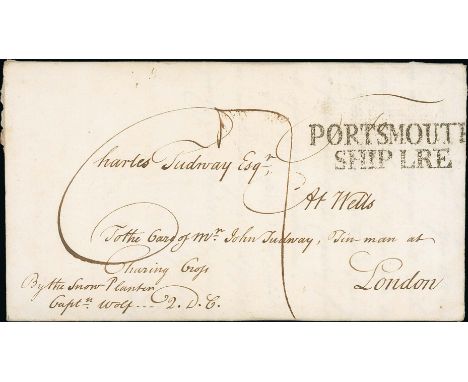 PORTSMOUTH
SHIP LRE
Charles Tudway Esqr.
At Wells
To the Care of Mr. John Tudway, Tin-man at
Charing Cross
London
By the Snow Planter
Captn. Wolf --- Q. D. C.